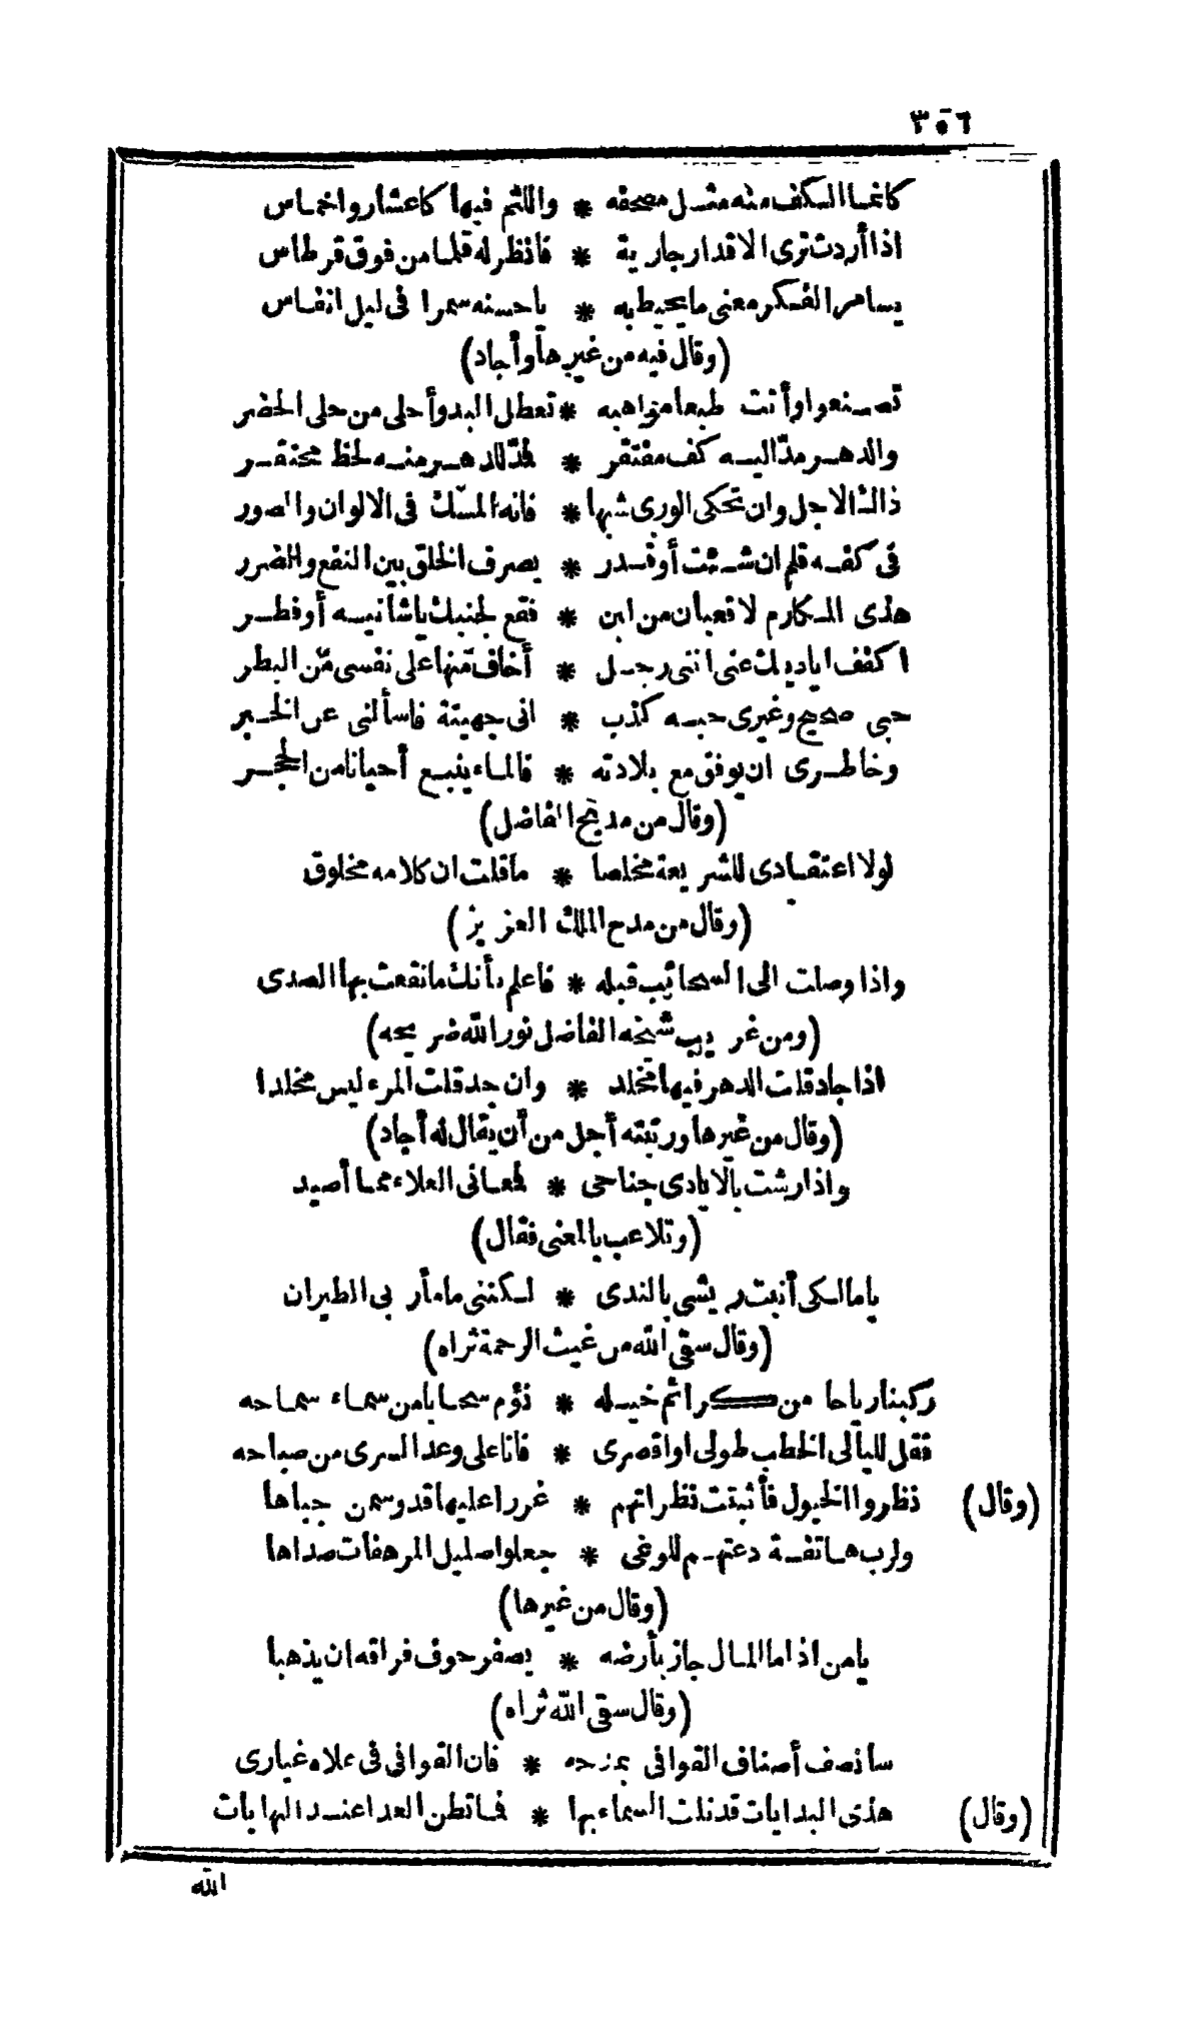 ٣٥٦
كانما الكف منه مثل مصحفه * واللثم فيها كاعشار واخماس
اذا أردت ترى الاقدار جارية * فانظر له قلما من فوق قرطاس
يسامر الفكر معنى ما يحيط به * ياحسنه سمرا فى ليل انفاس
(وقال فيه من غيرها وأجاد)
تصنعوا وأنت طبعا مواهبه * تعطل البدو أحلى من حلى الحضر
والدهر مدّ اليه كف مفتقر * فمدّ للدهر منه لحظ محتقر
ذاك الاجل وان تحكى الورى شبها * فانه المسك فى الالوان والصور
فى كفه قلم ان شئت أوقدر * يصرف الخلق بين النفع والضرر
هذى المكارم لاقعبان من لبن * فقع لجنبك ياشانيه أو فطر
اكفف اياديك عنى اننى رجل * أخاف منها على نفسى من البطر
حبى صحيح وغيرى حبه كذب * انى جهينة فاسألنى عن الخبر
وخاطرى ان يوفق مع بلادته * فالماء ينبع أحيانا من الحجر
(وقال من مديح الفاضل)
لولا اعتقادى للشريعة مخلصا * ماقلت ان كلامه مخلوق
(وقال من مدح الملك العزيز)
واذا وصلت الى السحائب قبله * فاعلم بأنك مانقعت بها الصدى
(ومن غريب شيخه الفاضل نور الله ضريحه)
اذا جاد قلت الدهر فيها مخلد * وان جد قلت المرء ليس مخلدا
(وقال من غيرها ورتبته أجل من أن يقال له أجاد)
واذا رشت بالايادى جناحى * فمعانى العلاء مما أصيد
(وتلاعب بالمعنى فقال)
يامالكى أنبت ريشى بالندى * لكننى ما مأربى الطيران
(وقال سقى الله من غيث الرحمة ثراه)
ركبنا رياحا من كرائم خيله * نؤم سحابا من سماء سماحه
فقل لليالى الخطب طولى اواقصرى * فانا على وعد السرى من صباحه
(وقال) نظروا الخيول فأثبتت نظراتهم * غررا عليها قد وسمن جباها
ولرب هاتفة دعتهم للوغى * جعلوا صليل المرهفات صداها
(وقال من غيرها)
يامن اذا ما المال جاز بأرضه * يصفر خوف فراقه ان يذهبا
(وقال سقى الله ثراه)
سانصف أصناف القوافى بمزحه * فان القوافى فى علاه غيارى
(وقال) هذى البدايات قد نلت السماء بها * فما تظن العدا عند النهايات
الله